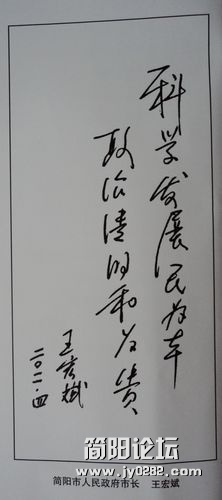 科学发展民为本
政治清明和为贵
王宏斌
二〇一一·四
简阳市人民政府市长 王宏斌
简阳论坛
www.jy0282.com